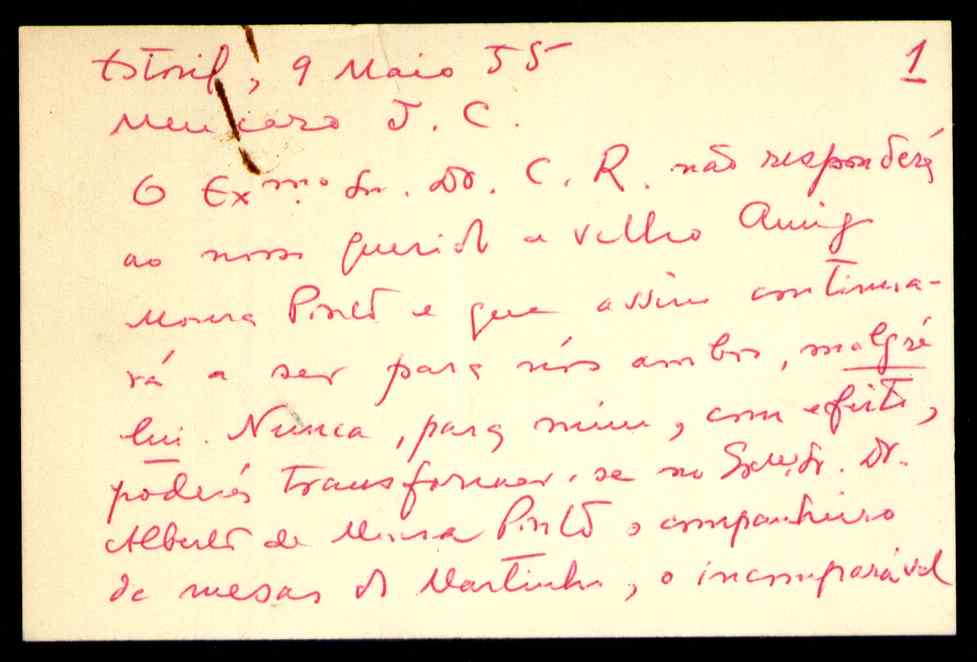 Estoril, 9 Maio 55
1
Meu caro J. C.
O Exmo. Sr. Dr. C. R. não responderá
ao nosso querido e velho Amigo
Moura Pinto e que assim continua-
rá a ser para nós ambos, malgré
lui. Nunca, para mim, com efeito,
poderá transformar-se no Exmo. Sr. Dr.
Alberto de Moura Pinto o companheiro
de mesas do Martinho, o incomparável